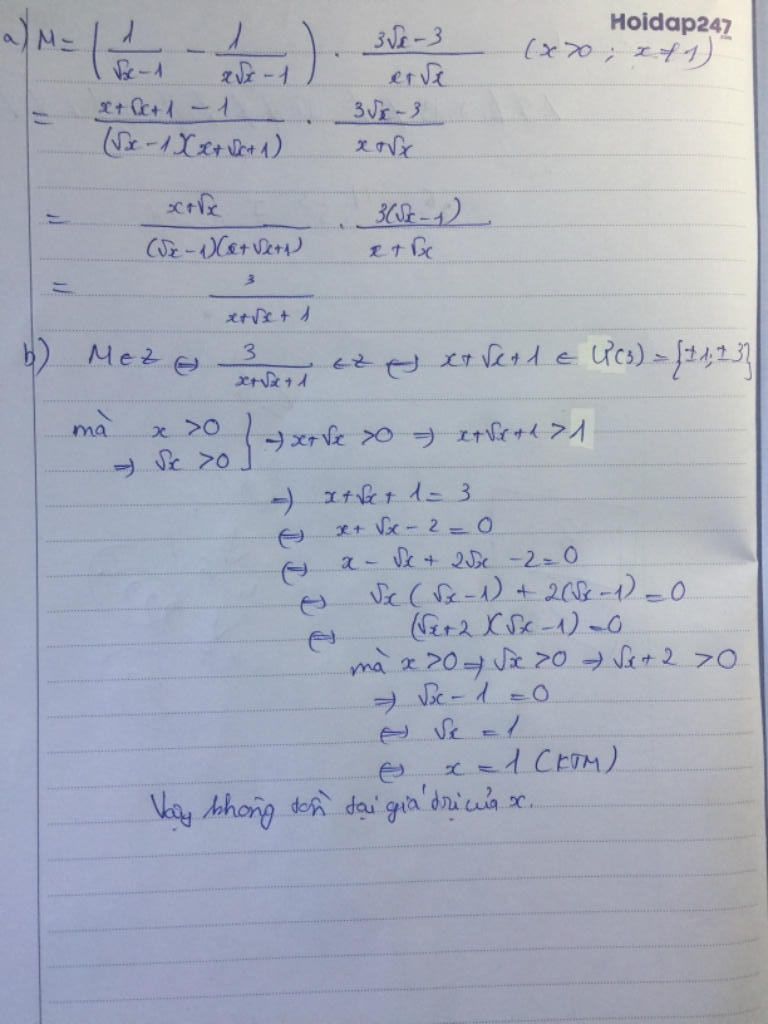 Hoidap247
a) M = (1/(√x-1) - 1/(x√x-1)) . (3√x-3)/(x+√x) (x>0; x≠1)
= (x+√x+1-1)/((√x-1)(x+√x+1)) . (3√x-3)/(x+√x)
= (x+√x)/((√x-1)(x+√x+1)) . 3(√x-1)/(x+√x)
= 3/(x+√x+1)
b) M∈Z ⇔ 3/(x+√x+1) ∈Z ⇔ x+√x+1 ∈ Ư(3) = {±1; ±3}
mà x>0
⇒ √x>0 } ⇒ x+√x>0 ⇒ x+√x+1>1
⇒ x+√x+1=3
⇔ x+√x-2=0
⇔ x-√x+2√x-2=0
⇔ √x(√x-1)+2(√x-1)=0
⇔ (√x+2)(√x-1)=0
mà x>0⇒√x>0⇒√x+2>0
⇒ √x-1=0
⇔ √x=1
⇔ x=1 (KTM)
Vậy không tồn tại giá trị của x.